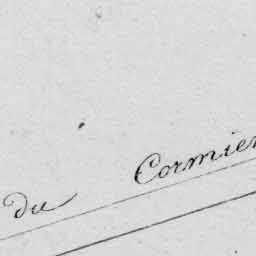 du Cormier